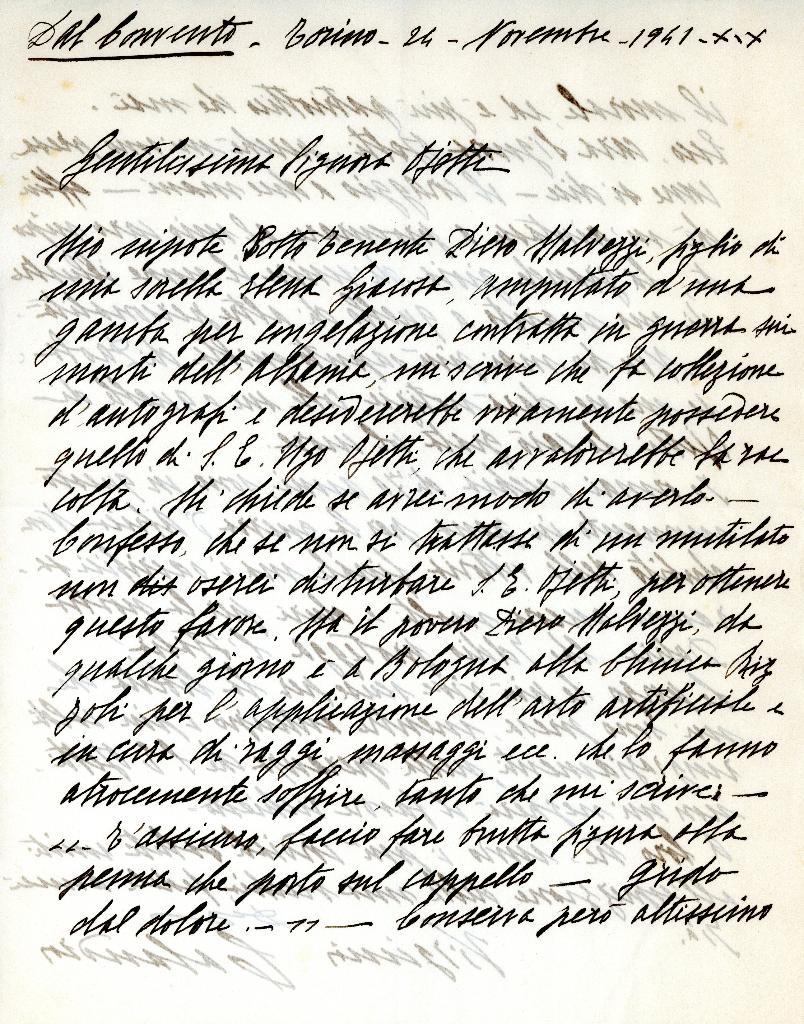 Dal Convento - Torino - 24 - Novembre - 1941 - XX
Gentilissima Signora Ojetti
Mio nipote Sotto Tenente Piero Malvezzi, figlio di
mia sorella Elena Giacosa, amputato d'una
gamba per congelazione contratta in guerra sui
monti dell'Albania, mi scrive che fa collezione
d'autografi e desidererebbe vivamente possedere
quello di S. E. Ugo Ojetti, che avvalorerebbe la rac
colta. Mi chiede se avrei modo di averlo. —
Confesso, che se non si trattasse di un mutilato
non dis oserei disturbare S. E. Ojetti, per ottenere
questo favore. Ma il povero Piero Malvezzi, da
qualche giorno è a Bologna alla Clinica Riz
zoli per l'applicazione dell'arto artificiale e
in cura di raggi, massaggi ecc. che lo fanno
atrocemente soffrire, tanto che mi scrive: —
... T'assicuro, faccio fare brutta figura alla
penna che porto sul cappello — grido
dal dolore. — " — Conserva però altissimo